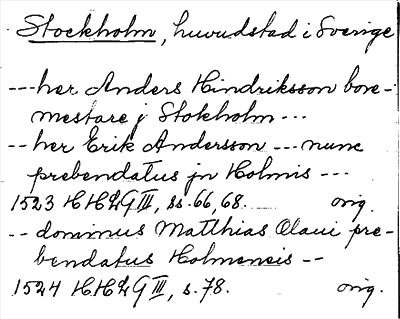 Stockholm, huvudstad i Sverige
--- her Anders Hindriksson bore-
mestare j Stokholm ---
-- her Erik Andersson --- nunc
prebendatus jn Holmis ---
1523 HHLG III, ss. 66, 68. orig.
-- dominus Matthias Olaui pre-
bendatus Holmensis --
1524 HHLG III, s. 78. orig.